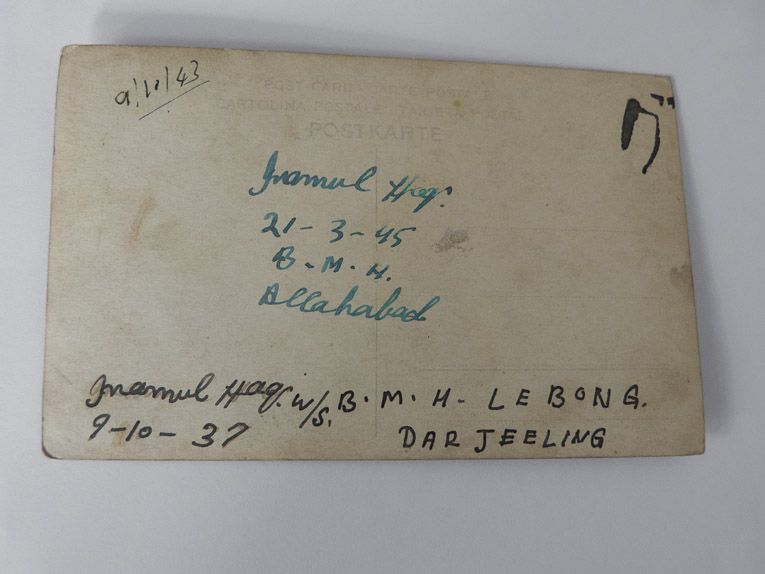 9/10/43
POST CARD - CARTE POSTALE
CARTOLINA POSTALE
POSTKARTE
Inamul Haq.
21-3-45
B.M.H.
Allahabad
Inamul Haq. W/S. B.M.H- LEBONG.
9-10-37
DARJEELING